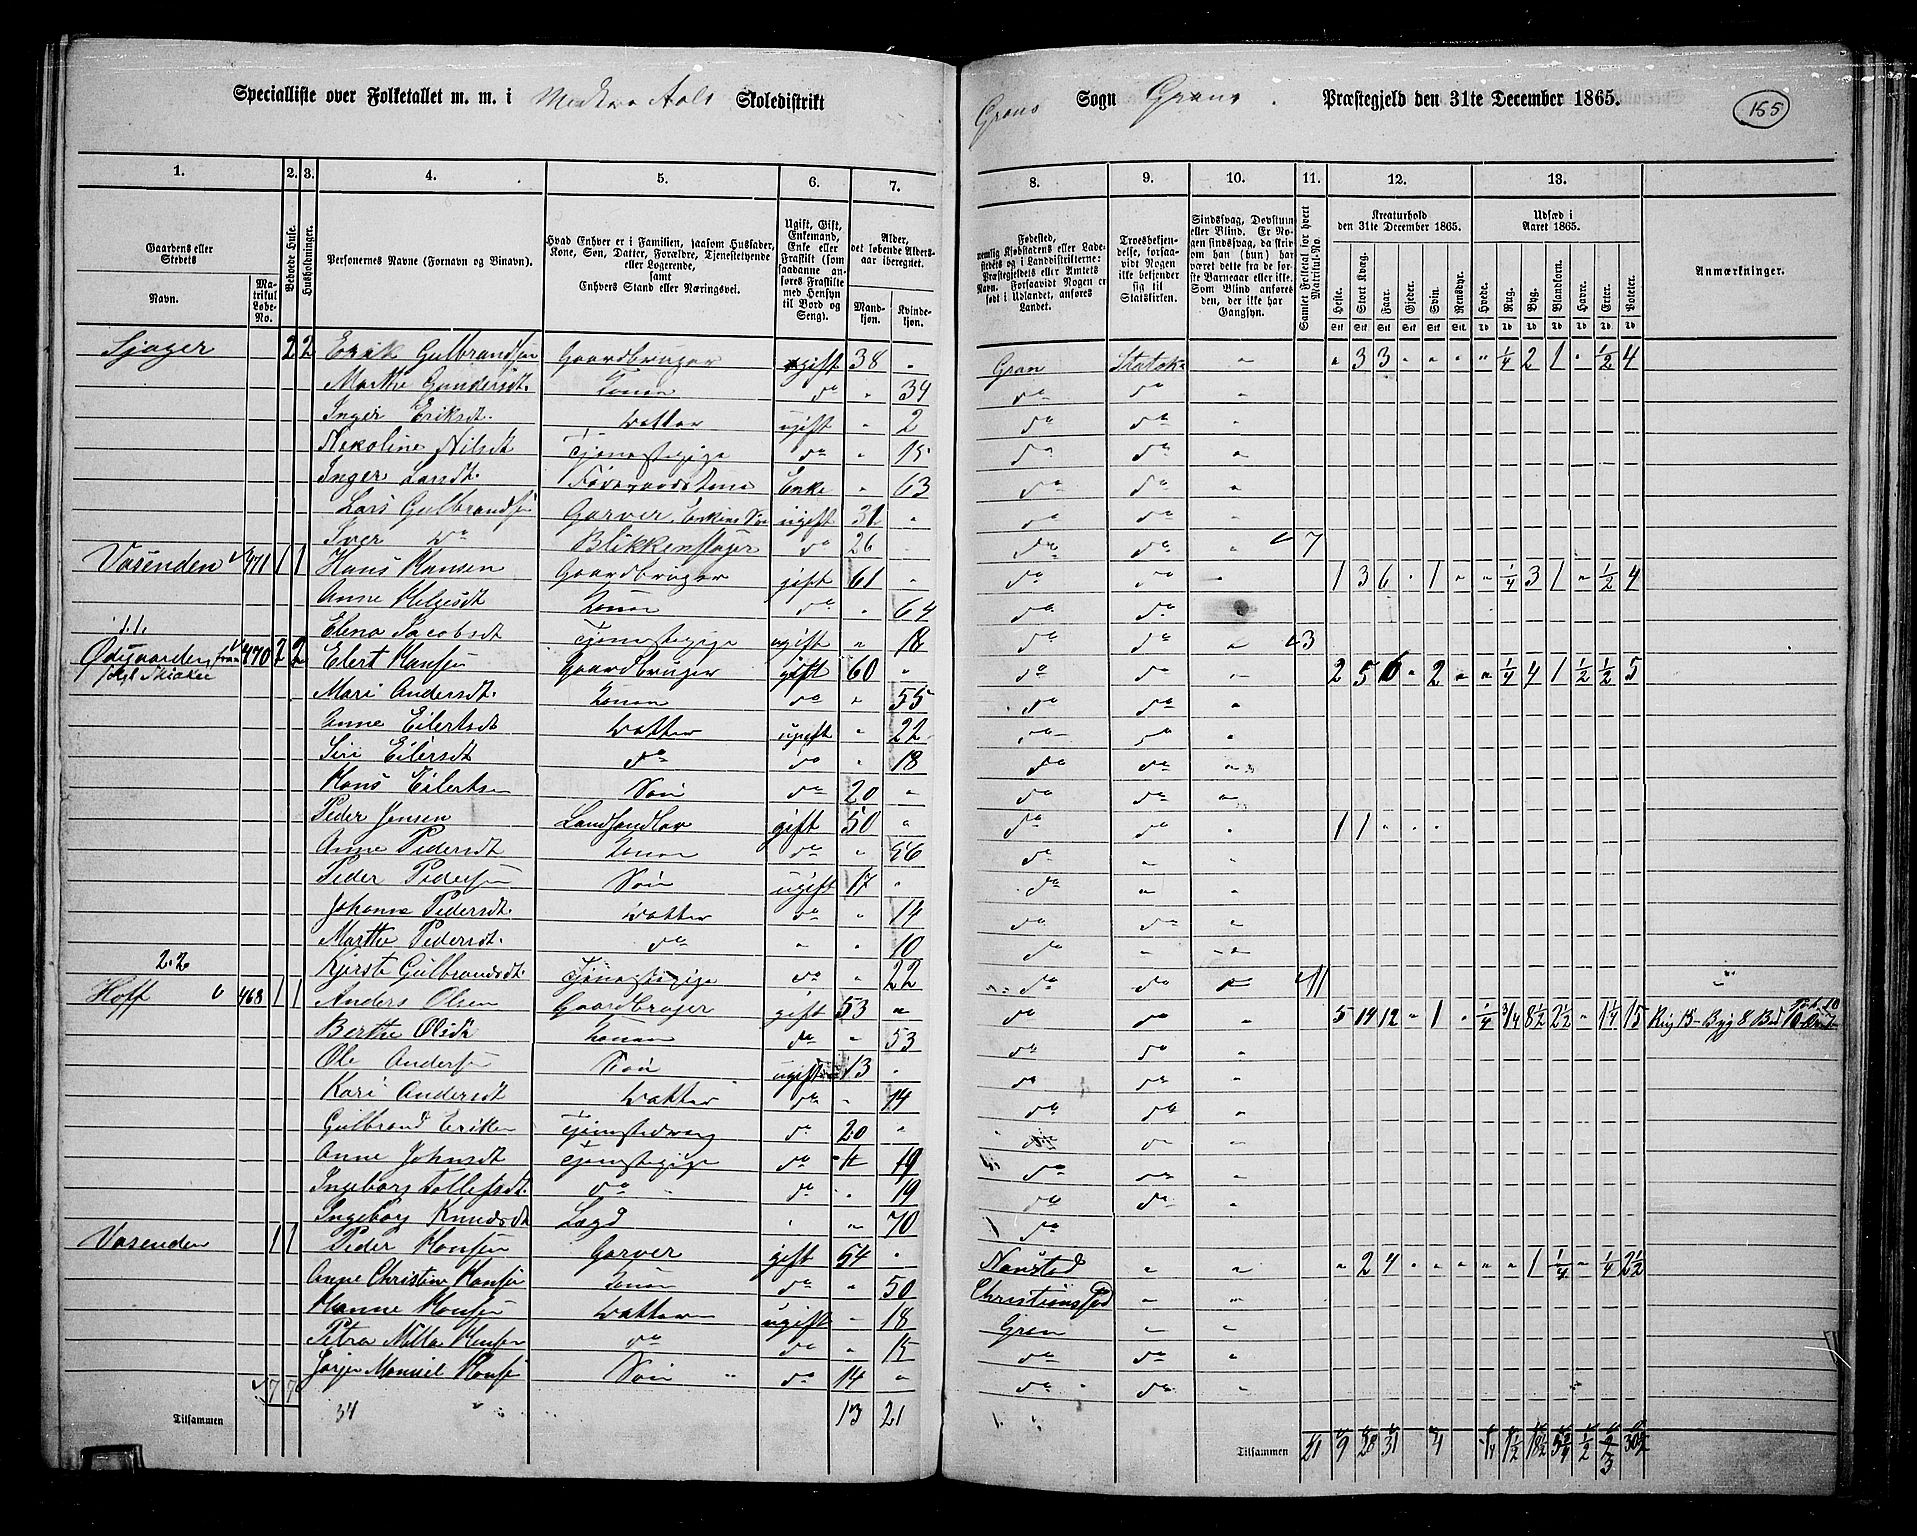 Specialliste over Folketallet m. m. i Aals Skoledistrikt
Grans Sogn Grans Præstegjeld den 31te December 1865.
155
1. 2. 3. 4. 5. 6. 7.
8. 9. 10. 11. 12. 13.
Gaardens eller Stedets
Navn.
Matrikul Løbe-No.
Beboede Huse.
Husholdninger.
Personernes Navne (Fornavn og Binavn).
Hvad Enhver er i Familien, saasom Husfader, Kone, Søn, Datter, Forældre, Tjenestetyende eller Logerende,
samt
Enhvers Stand eller Næringsvei.
Ugift, Gift, Enkemand, Enke eller Fraskilt (som saadanne anføres Fraskilte med Hensyn til Bord og Seng).
Alder, det løbende Aldersaar iberegnet.
Mandkjøn. Kvindekjøn.
Fødested, nemlig Kjøbstadens eller Ladestedets eller i Landdistrikterne: Præstegjeldets eller Amtets Navn. Forsaavidt Nogen er født i Udlandet, anføres Landet.
Troesbekjendelse, forsaavidt Nogen ikke bekjender sig til Statskirken.
Sindssvag, Døvstum eller Blind. Er Nogen sindssvag, da skrives om han (hun) har været dette fra de første Barneaar eller ikke. Som Blind anføres den, der ikke har Gangsyn.
Samlet Folketal for hvert Matrikul-No.
Kreaturhold den 31te December 1865.
Heste. Stort Kvæg. Faar. Gjeder. Svin. Rensdyr.
Udsæd i Aaret 1865.
Hvede. Rug. Byg. Blandkorn. Havre. Erter. Poteter.
Anmærkninger.
Sjager 2 2 Erik Gulbrandsen Gaardbruger gift 38 " Gran Statsk " " 3 3 " " " " 1/4 2 1 " 1/2 4
Marthe Gundersdt. Konen do " 34 do do "
Inger Eriksdt. Datter ugift " 2 do do "
Nekoline Nilsdt Tjenestepige do " 15 do do "
Inger Larsdt. Enke " 63 do do "
Lars Gulbrandsen Garver, Enkens Søn ugift 31 " do do "
Iver do Blikkenslager do 26 " do do " 7
Vasenden 471 1 1 Hans Hansen Gaardbruger gift 61 " do do " 1 3 6 " 1 " " 1/4 3 1 " 1/2 4
Anne Helgesdt Konen do " 64 do do
Elena Jacobsdt Tjenestepige ugift " 18 do do " 3
1.1.
Ødegaarden 470 2 2 Elert Hansen Gaardbruger gift 60 " do do " 2 5 6 " 2 " " 1/4 4 1 1/2 1/2 5
Mari Andersdt. Konen do " 55 do do "
Anne Eilertsdt Datter ugift " 22 do do "
Siri Eilersdt do do " 18 do do "
Hans Eilertsen Søn do 20 " do do "
Peder Jensen Landhandler gift 50 " do do " 1 1 " " "
Anne Pedersdt Konen do " 46 do " "
Peder Pedersen Søn ugift 17 " do " "
Johanne Pedersdt. Datter do " 14 do do "
Marthe Pedersdt. do " " 10 do " "
Kjersti Gulbrandsdt. Tjenestepige do " 22 do do " 11
2.2
Hoff 463 1 1 Anders Olsen Gaardbruger gift 53 " do do " 5 19 12 " 1 " 1/4 3/4 8 1/2 2 1/2 " 1 1/4 15 Rug 15 - Byg 8
Berthe Olsdt Konen do " 53 do do "
Ole Andersen Søn ugift 13 " do do "
Kari Andersdt Datter do " 14 do do "
Gulbrand Eriksen Tjenestedreng do 20 " do do "
Anne Johnsdt Tjenestepige do " 19 do do "
Ingeborg Tollefsdt. do do " 19 do do "
Ingeborg Knudsdt Lægd " " 70 do
Vasenden 1 1 Peder Hansen Garver gift 54 " " " " 2 4 " " " " " 1 1/4 " 1/4 2 1/2
Anne Christine Hansen Konen do " 50 Christiansstad " "
Hanne Hansen Datter ugift " 18 Gran " "
Petra Hansen do do " 15 do do "
Jørgen Hansen Søn do 14 " do do "
7 7
Tilsammen 34 13 21
Tilsammen 21 9 31 4